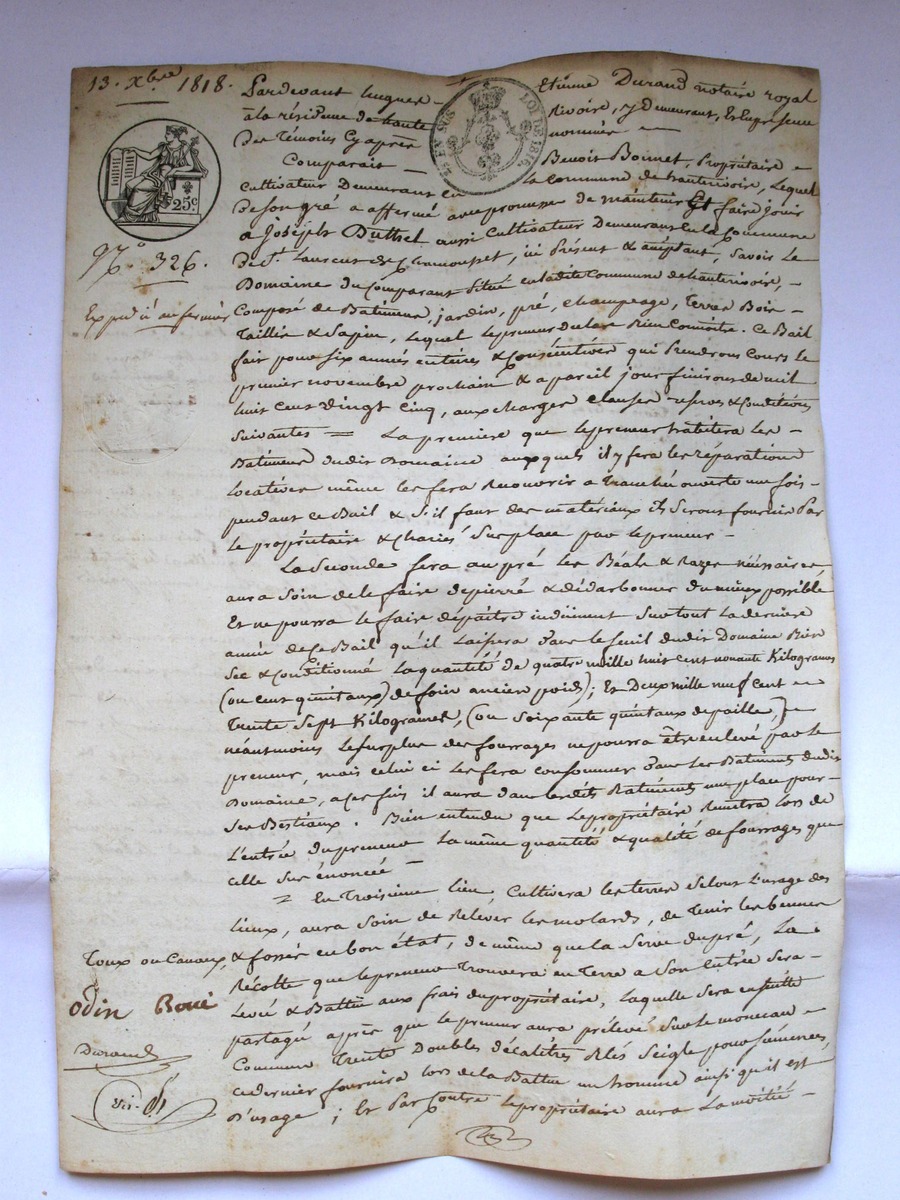 13. Xbre 1818.
Pardevant hugues Etienne Durand notaire royal
à la résidence de haute Rivoire, y Demeurant, En la presence
Des Témoins Cy après nommés
TIMB. ROYAL LOI DE 1816.
25c
Comparait Benoit Bonnet, Propriétaire
Cultivateur Demeurant en la Commune de hauterivoire, Lequel
De son gré a affermé avec promesse de maintenir Et faire Jouir
a Joseph Duthel aussi Cultivateur Demeurant En la Commune
De St. Laurent de Chamousset, ici Présent & acceptant, Savoir Le
No. 326.
Domaine du Comparant Situé en ladite Commune de hauterivoire,
Expedié au fermier
Composé de Batimens, jardin, pré, champeage, Terres Bois
Taillis & Sapins, Lequel le preneur declare Bien Connoitre. Ce Bail
fait pour six années entières & Consécutives qui Prendront Cours le
premier novembre prochain & a pareil jour finiront de mil
huit Cent Vingt Cinq, aux charges clauses reserves & Conditions
suivantes = La première que le preneur habitera les
Batimens dudit Domaine auxquels il y fera les réparations
Locatives même les fera Recouvrir a Tranchée ouverte une fois
pendant ce Bail & S'il faut des matériaux Ils Seront fournis Par
le propriétaire & Chariés Sur place par le preneur
La Seconde fera au pré les Béals & Razes nécessaires,
aura Soin de le faire depierré & dédarbonner du mieux possible
Et ne pourra le faire dépaitre indûment Sur tout La derniere
année de ce Bail qu'il Laissera Dans le fenil dudit Domaine Bien
Sec & Conditionné La quantité de quatre mille huit cent nonante Kilogrames
(ou cent quintaux) de foin ancien poids); Et Deux mille neuf cent
Trente Sept Kilogrames, (ou Soixante quintaux de paille,)
néantmoins Le Surplus des fourrages ne pourra être enlevé par le
preneur, mais celui ci les fera consommer Dans les Batimens dudit
Domaine, a ces fins il aura dans lesdits Batiments une place pour
Ses Bestiaux. Bien entendu que Le propriétaire Remetra lors de
L'entrée du preneur La même quantité & qualité de fourrages que
celle Sus énoncée
= En Troisieme lieu, Cultivera les terres Selon L'usage des
Lieux, aura Soin de Relever les molards, de Tenir les bennes
Toux ou Canaux,
& fossés en bon état, de même que la Serve du pré, La
Récolte que le preneur Trouvera en Terre a Son Entrée Sera
odin Boué
Levée & Battue aux frais du propriétaire, Laquelle Sera ensuite
partagé après que le preneur aura prélevé Sur le monceau
Durand
Commun Trente Doubles décalitres Blés Seigle pour Sémences,
ce dernier fournira lors de la Battue un homme ainsi qu'il est
D'usage ; Et Par Contre le propriétaire aura La moitié